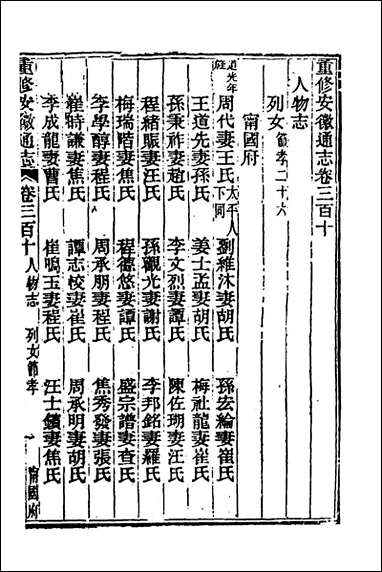 重修安徽通志卷三百十
人物志
列女節孝二十六
甯國府
道光年旌 周代妻王氏 太平人下同 劉維沐妻胡氏 孫宏綸妻崔氏
王道先妻孫氏 姜士孟妻胡氏 梅社龍妻崔氏
孫秉祚妻趙氏 李文烈妻譚氏 陳佐瑚妻汪氏
程緒賑妻汪氏 孫觀光妻謝氏 李邦銘妻羅氏
梅瑞階妻焦氏 程德悠妻譚氏 盛宗譜妻查氏
李學醇妻程氏 周承朋妻程氏 焦秀發妻張氏
崔時謙妻焦氏 譚志悛妻崔氏 周承明妻胡氏
李成龍妻曹氏 崔鳴玉妻程氏 汪士鑣妻焦氏
重修安徽通志 卷三百十 人物志 列女節孝 一 甯國府